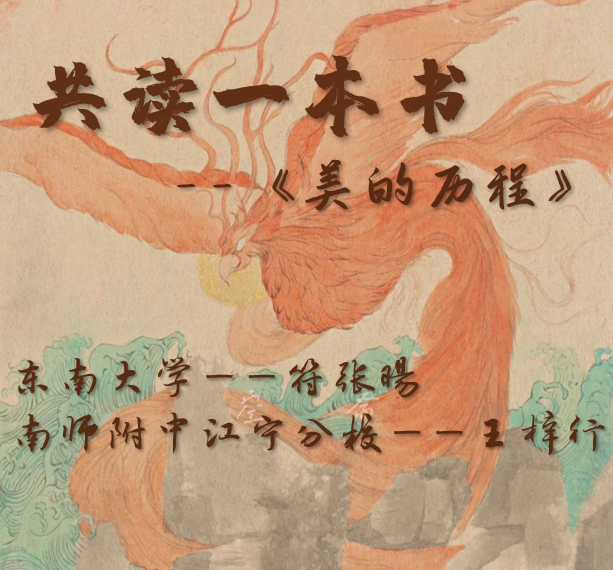 共读一本书
--《美的历程》
东南大学——符张暘
南师附中江宁分校——王梓行